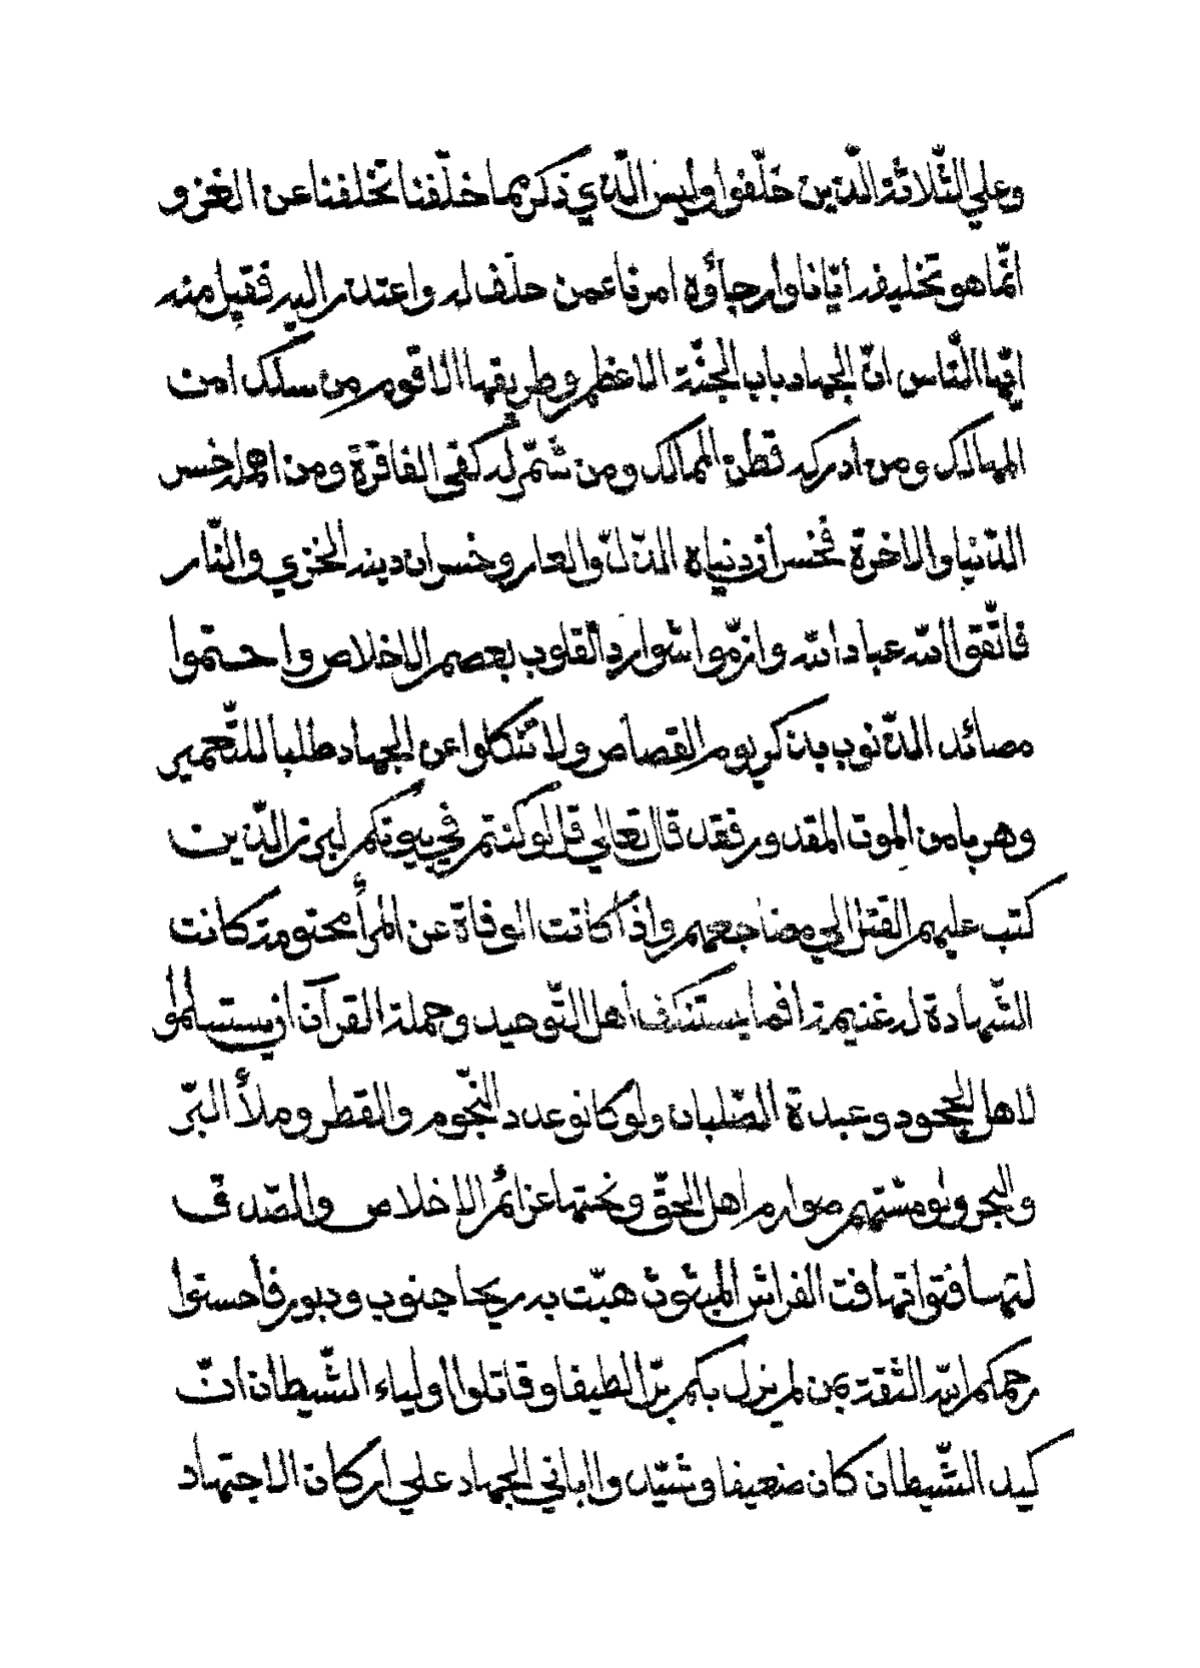 وعلي الثّلاثة الّذين خَلّفوا وليس الّذي ذكر بما خلّفنا تخلفنا عن الغزو
انّما هو تخليفه أيّانا وارجاؤه امرنا عمن حلَف له واعتذر اليه فقبِل منه
ايّها النّاس انّ الجهاد باب الجنّة الاعظم وطريقها الاقوم مِن سلكه امن
المهالك ومن ادركه قطن الممالك ومن شمّر له كفي الفاقرة ومن اهمله خسر
الدّنيا والاخرة فخسران دنياه الذلّ والعار وخسران دينه الخزي والنّار
فاتّقوا اللّه عباد اللّه وازمّوا شوارد القلوب بعصم الاخلاص واحسموا
مصائد الذّنوب بذكر يوم القصاص ولا تنكلوا عن الجهاد طلبا للتّعمير
وهربا من الموت المقدور فقد قال تعالي قل لو كنتم في بيوتكم لبرز الّذين
كتب عليهم القتل الي مضاجعهم واذا كانت الوفاة عن المرأ محتومة كانت
الشّهادة له غنيمة أفما يستنكف أهل التّوحيد وحملة القرآن ان يستسلموا
لاهل الجحود وعبدة الصّلبان ولو كانو عدد النّجوم والقطر وملأ البّر
والبحر ولو مشتهم صوارم اهل الحقّ ونحتها عزائم الاخلاص والصّدق
لتهافتوا تهافت الفراش المبثوث هبّت به ريحا جنوب ودبور فأحسنوا
رحمكم اللّه الثقة بمن لم يزل بكم برّا لطيفا وقاتلوا اولياء الشّيطان انّ
كيد الشّيطان كان ضعيفا وشيّدوا باني الجهاد علي اركان الاجتهاد